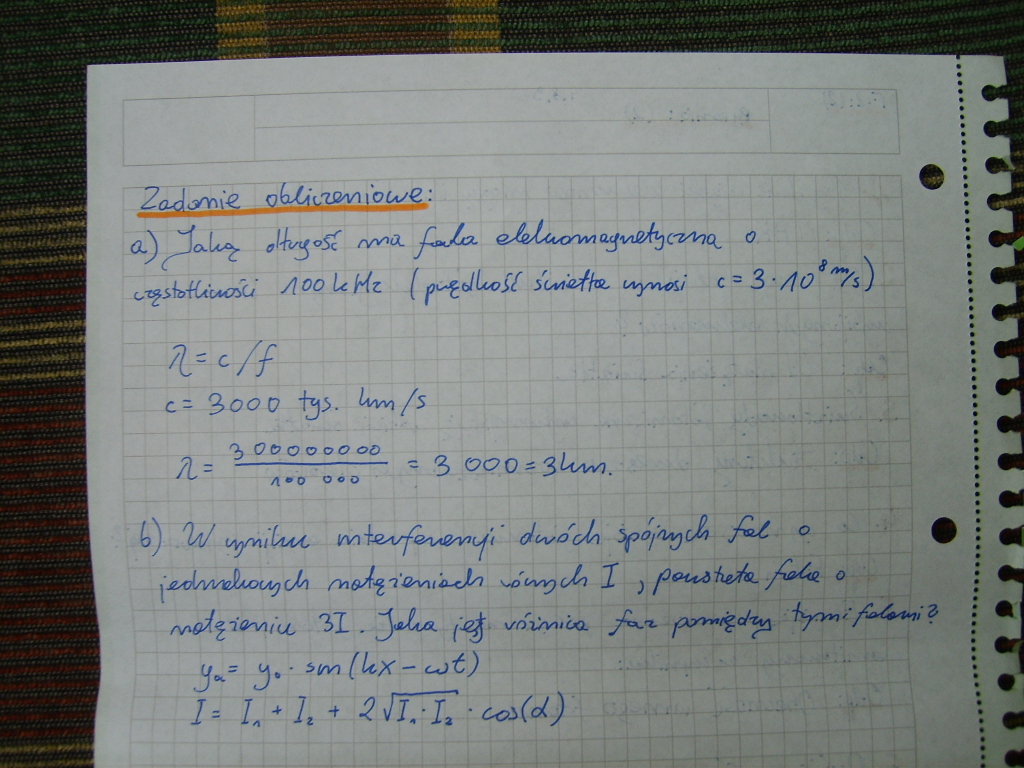 Zadanie obliczeniowe:
a) Jaką długość ma fala elektromagnetyczna o
częstotliwości 100 kHz (prędkość światła wynosi c = 3·10⁸ m/s)
λ = c/f
c = 3000 tys. km/s
λ = 300000000 / 100 000 = 3 000 = 3km.
b) W wyniku interferencji dwóch spójnych fal o
jednakowych natężeniach równych I, powstała fala o
natężeniu 3I. Jaka jest różnica faz pomiędzy tymi falami?
yₐ = y₀ · sin(kx - ωt)
I = I₁ + I₂ + 2√(I₁·I₂) · cos(α)